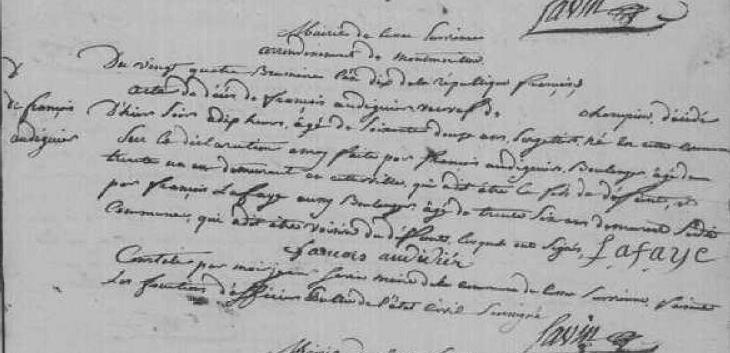 Savin
Mairie de
arrondissement de
Du vingt quatre Brumaire l'an dix de la République français,
D
acte de décès de françois audiguier veuf de champion, décédé
de françois
audiguier
d'hier soir dix heures, âgé de Soixante douze ans, Sergetier, né en cette commune
Sur la déclaration a moy faite par françois audiguier, Boulanger, âgé de
trente un an demeurant en cette ville, qui a dit être le fils du défunt, et
par françois Lafaye aussy Boulanger, âgé de trente Six ans demeurant Susdite
Commune, qui a dit être voisin du défunt, lesquels ont Signés, Lafaye
francois audidiér
Constaté par moi Savin maire de la commune de faisant
Les fonctions d'officier Public de l'état Civil Soussigné
Savin
Mairie de